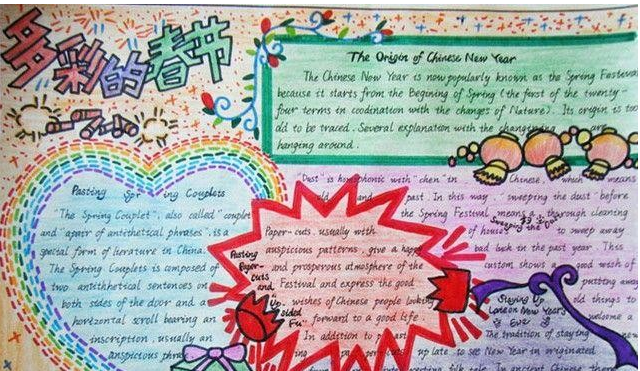 多彩的春节
The Origin of Chinese New Year
The Chinese New Year is now popularly known as the Spring Festival
because it starts from the Begining of Spring (the first of the twenty-
four terms in coodination with the changes of Nature). Its origin is too
old to be traced. Several explanation with the are
hanging around.
Pasting Spr ing Couplets
"The Spring Couplet", also called "couplet
and "a pair of antithetical phrases", is a
special form of literature in China.
The Spring Couplets is composed of
two antithetical sentences on
both sides of the door and a
horizontal scroll bearing an
inscription, usually an
auspicious phrase
"Dust" is homophonic with "chen" in Chinese, which means
old and past In this way "sweeping the dust" before
the Spring Festival means a thorough cleaning
of house to sweep away
bad luck in the past year This
custom shows a good wish of
putting away
old things to
welcome a
Sweeping the Dust
Pasting
Paper-
cuts
and
"Up
sided
Fu"
Paper-cuts, usually with
auspicious patterns, give a happy
and prosperous atmosphere of the
Festival and express the good
wishes of Chinese people looking
forward to a good life.
In addition to
Staying Up
Late on New Year's
Eve
The tradition of staying
up late to see New in originated